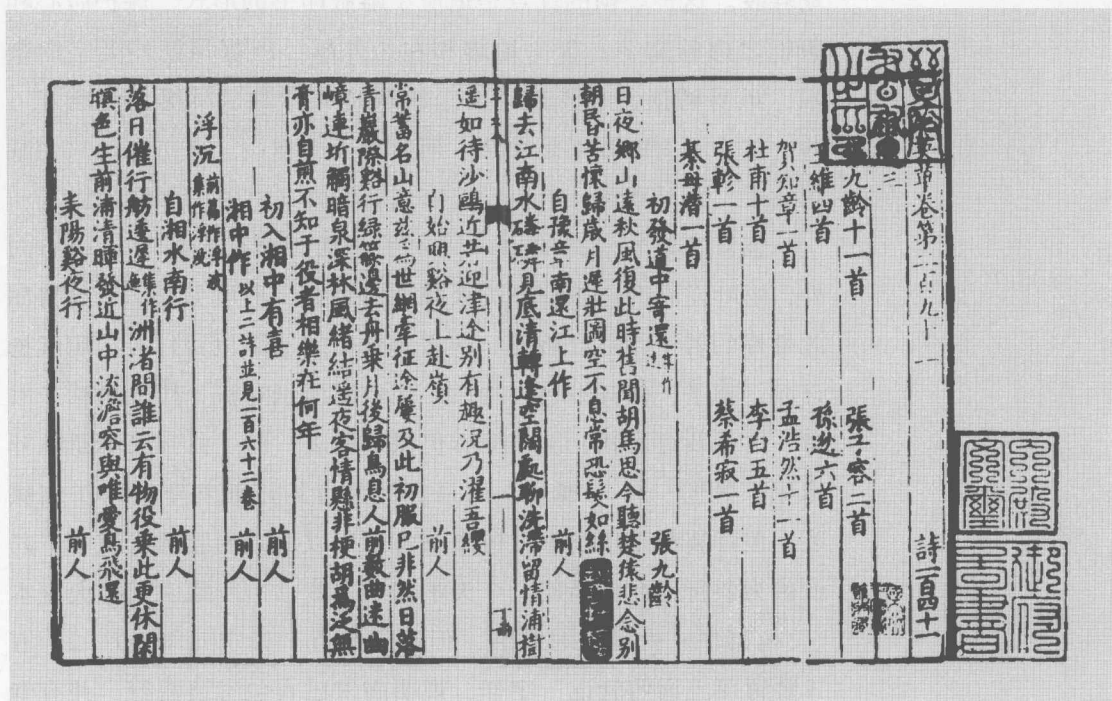 文苑英華卷第二百九十一
詩一百四十一
張九齡十一首 張子容二首
王維四首 孫逖六首
賀知章一首 孟浩然十一首
杜甫十首 李白五首
張軫一首 蔡希寂一首
綦毋潛一首
初發道中寄還集作遠 張九齡
日夜鄉山遠秋風復此時舊聞胡馬思今聽楚猿悲念別
朝昏苦懷歸歲月遲壯圖空不息常恐髮如絲
自豫章南還江上作 前人
歸去江南水磷磷見底清轉逢空闊處聊洗滯留情浦樹
遥如待沙鷗近共迎津途別有趣況乃濯吾纓
自始興谿夜上赴嶺 前人
常蓄名山意茲爲世網牽征途屢及此初服已非然日落
青巖際谿行綠篠邊去舟乘月後歸鳥息人前數曲迷幽
嶂連圻觸暗泉深林風緒結遥夜客情懸非梗胡爲泛無
膏亦自煎不知于役者相樂在何年
初入湘中有喜 前人
湘中作以上二詩並見一百六十二卷 前人
浮沉
自湘水南行 前人
落日催行舫逶迤洲渚間誰云有物役乘此更休閑
暝色生前浦清暉發近山中流澹容與唯愛鳥飛還
耒陽谿夜行 前人